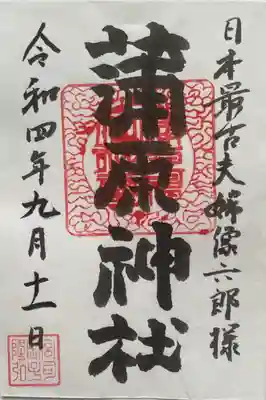 日本最古夫婦像六郎様
蒲原神社
令和四年九月十一日